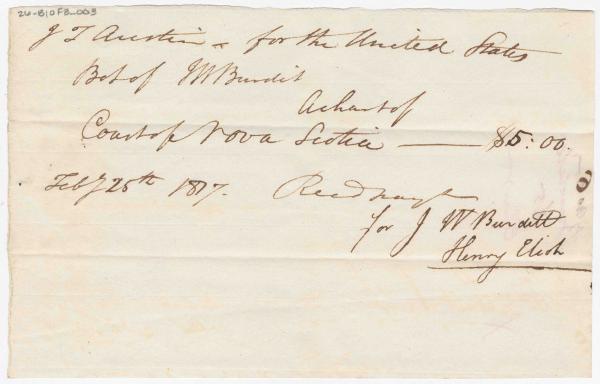 26-B10F3-003
J T Austin for the United States
Bot of J W Burdit
A chart of
Coast of Nova Scotia — $5:00.
Feby 25th 1817. Recd payt
for J W Burditt
Henry Eliot